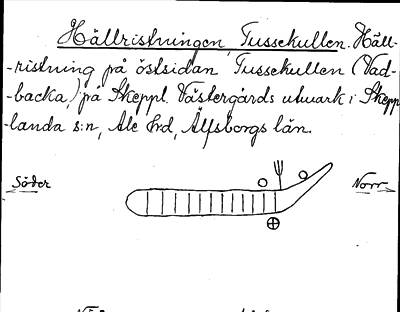 Hällristningen, Tussekullen. Häll-
-ristning på östsidan Tussekullen (Vad-
-backa,) på Skeppl. Västergårds utmark i Skepp-
-landa s:n, Ale hrd, Älfsborgs län.
Söder
Norr